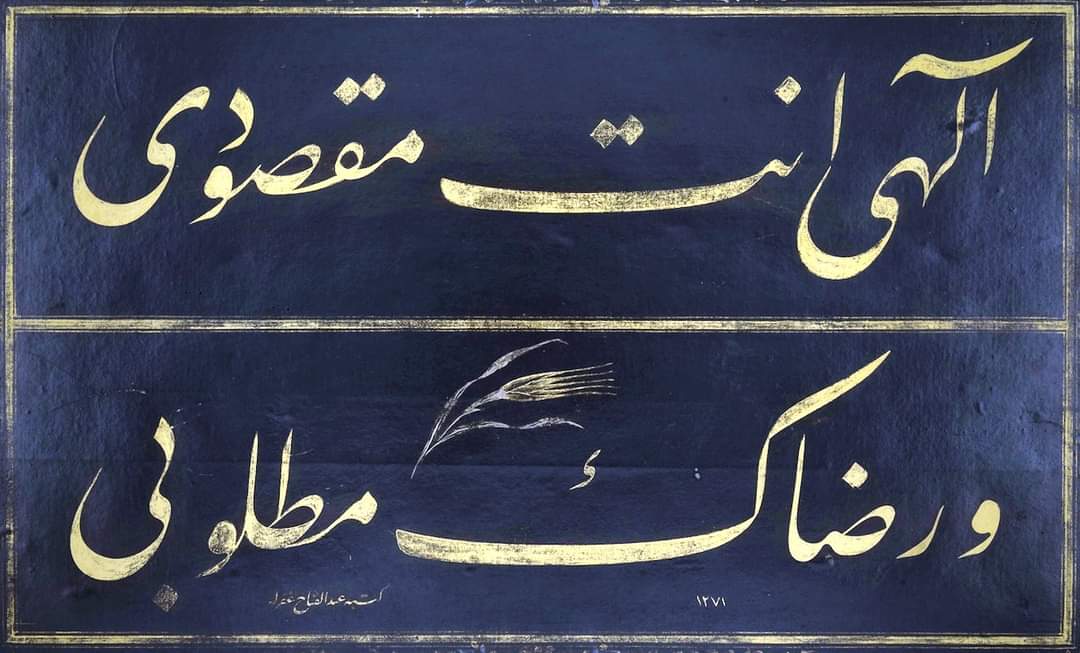 الهی انت مقصودی
ورضاک مطلوبی
کتبه عبدالفتاح غفرله
١٢٧١